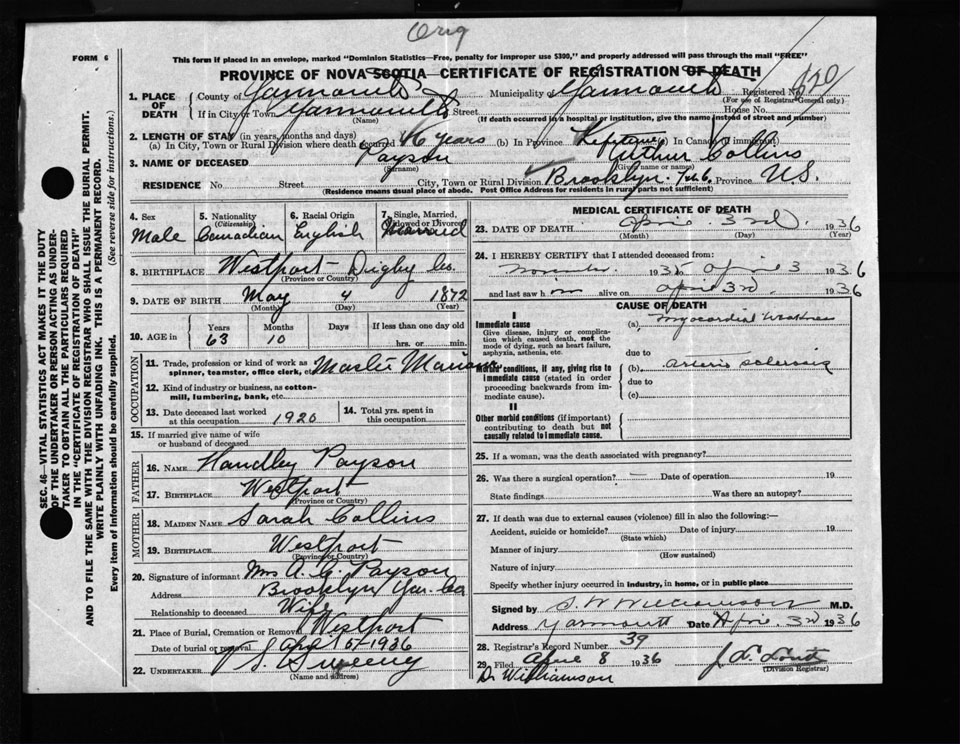 Orig
FORM 6
This form if placed in an envelope, marked "Dominion Statistics—Free, penalty for improper use $300," and properly addressed will pass through the mail "FREE"
PROVINCE OF NOVA SCOTIA—CERTIFICATE OF REGISTRATION OF DEATH
1. PLACE OF DEATH County of Yarmouth Municipality Yarmouth Registered No.
(For use of Registrar General only)
If in City or Town Yarmouth Street House No.
(Name) (If death occurred in a hospital or institution, give the name instead of street and number)
2. LENGTH OF STAY (in years, months and days)
(a) In City, Town or Rural Division where death occurred 46 years (b) In Province Lifetime (c) In Canada (if immigrant)
3. NAME OF DECEASED Payson Arthur Collins
(Surname) (Given name or names)
RESIDENCE No. Street City, Town or Rural Division Brooklyn Province N.S.
(Residence means usual place of abode. Post Office Address for residents in rural parts not sufficient)
4. Sex 5. Nationality (Citizenship) 6. Racial Origin 7. Single, Married, Widowed or Divorced
Male Canadian English Married
8. BIRTHPLACE Westport Digby Co.
(Province or Country)
9. DATE OF BIRTH May 4 1872
(Month) (Day) (Year)
10. AGE in Years Months Days If less than one day old
63 10 hrs. or min.
OCCUPATION
11. Trade, profession or kind of work as spinner, teamster, office clerk, etc. Master Mariner
12. Kind of industry or business, as cotton-mill, lumbering, bank, etc.
13. Date deceased last worked at this occupation 1920 14. Total yrs. spent in this occupation
15. If married give name of wife or husband of deceased
FATHER
16. NAME Handley Payson
17. BIRTHPLACE Westport
(Province or Country)
MOTHER
18. MAIDEN NAME Sarah Collins
19. BIRTHPLACE Westport
(Province or Country)
20. Signature of informant Mrs A. C. Payson
Address Brooklyn Yar. Co
Relationship to deceased Wife
21. Place of Burial, Cremation or Removal Westport
Date of burial or removal April 5 1936
22. UNDERTAKER V S. Sweeny
(Name and address)
MEDICAL CERTIFICATE OF DEATH
23. DATE OF DEATH April 3rd 1936
(Month) (Day) (Year)
24. I HEREBY CERTIFY that I attended deceased from:
November 1935 to April 3 1936
and last saw him alive on April 3rd 1936
CAUSE OF DEATH
I
Immediate cause (a) Myocardial Weakness
Give disease, injury or complication which caused death, not the mode of dying, such as heart failure, asphyxia, asthenia, etc.
due to
Morbid conditions, if any, giving rise to immediate cause (stated in order proceeding backwards from immediate cause). (b) arterio sclerosis
due to
(c)
II
Other morbid conditions (if important) contributing to death but not causally related to immediate cause.
25. If a woman, was the death associated with pregnancy?
26. Was there a surgical operation? — Date of operation 19
State findings Was there an autopsy?
27. If death was due to external causes (violence) fill in also the following:—
Accident, suicide or homicide? Date of injury 19
(State which)
Manner of injury
(How sustained)
Nature of injury
Specify whether injury occurred in industry, in home, or in public place
Signed by S. W Williamson M.D.
Address Yarmouth Date April 3rd 1936
28. Registrar's Record Number 39
29. Filed April 8 1936
(Division Registrar)
Dr Williamson
SEC. 46—VITAL STATISTICS ACT MAKES IT THE DUTY
OF THE UNDERTAKER OR PERSON ACTING AS UNDER-
TAKER TO OBTAIN ALL THE PARTICULARS REQUIRED
IN THE "CERTIFICATE OF REGISTRATION OF DEATH"
AND TO FILE THE SAME WITH THE DIVISION REGISTRAR WHO SHALL ISSUE THE BURIAL PERMIT.
WRITE PLAINLY WITH UNFADING INK. THIS IS A PERMANENT RECORD.
Every item of Information should be carefully supplied. (See reverse side for instructions.)